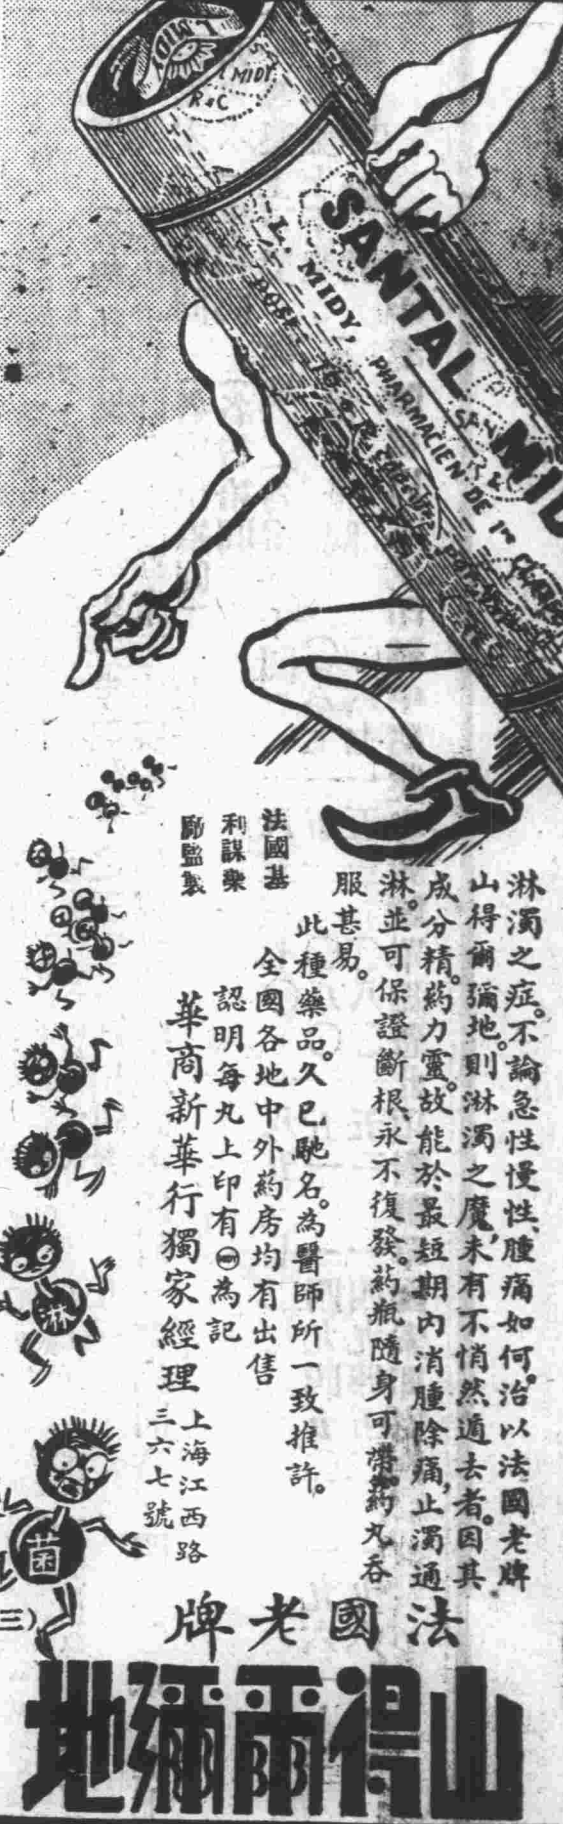 MIDY
SANTAL MIDY
L. MIDY, PHARMACIEN DE 1re CLASSE
淋濁之症。不論急性慢性、腫痛如何。治以法國老牌
山得爾彌地。則淋濁之魔、未有不悄然遁去者。因其
成分精。药力靈。故能於最短期內消腫除痛、止濁通
淋。並可保證斷根、永不復發。药瓶隨身可帶。药丸吞
服甚易。
此種藥品。久已馳名。為醫師所一致推許。
全國各地中外药房均有出售
認明每丸上印有為記
法國基
利謀藥
廠監製
華商新華行獨家經理
上海江西路
三六七號
淋
菌
三)
法國老牌
山得爾彌地